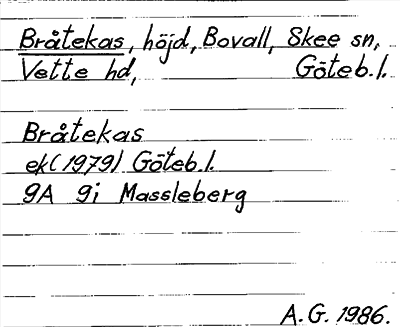 Bråtekas, höjd, Bovall, Skee sn,
Vette hd, Göteb.l.
Bråtekas
ek(1979) Göteb.l.
9A 9i Massleberg
A.G. 1986.